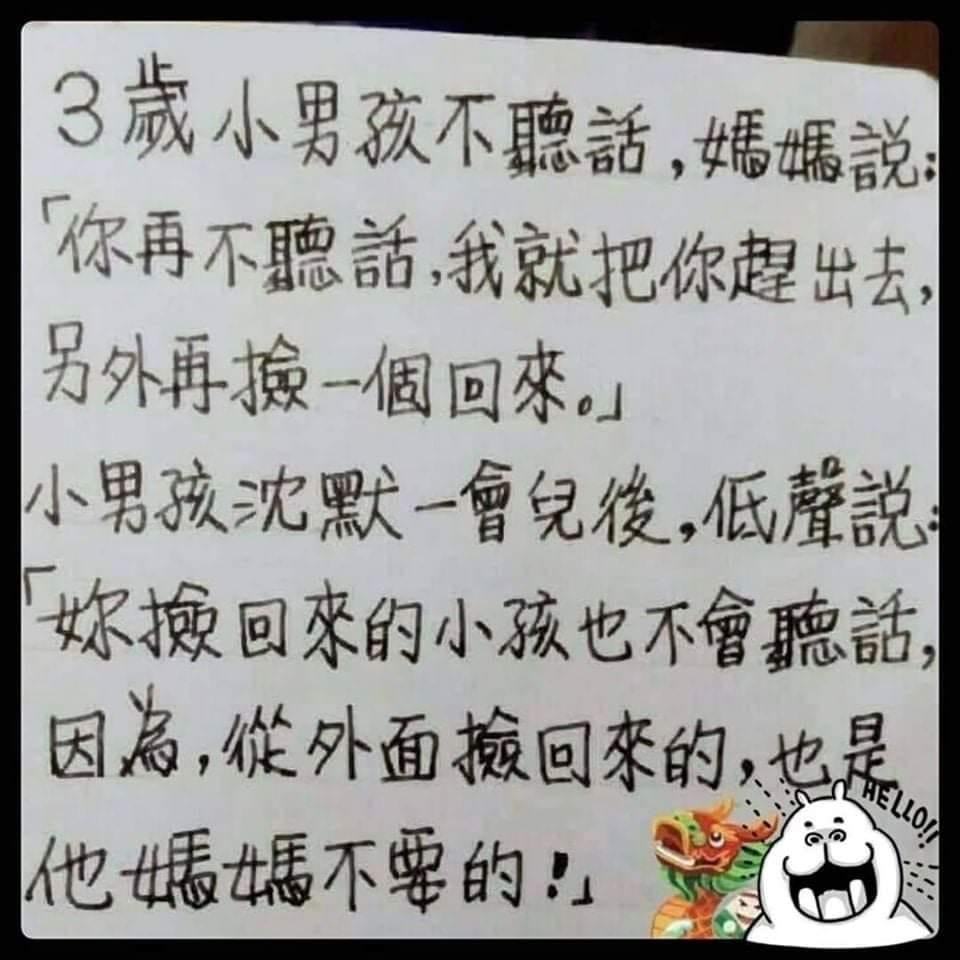 3歲小男孩不聽話,媽媽説:
「你再不聽話,我就把你趕出去,
另外再撿一個回來。」
小男孩沈默一會兒後,低聲説:
「妳撿回來的小孩也不會聽話,
因為,從外面撿回來的,也是
他媽媽不要的!」
HELLO!!